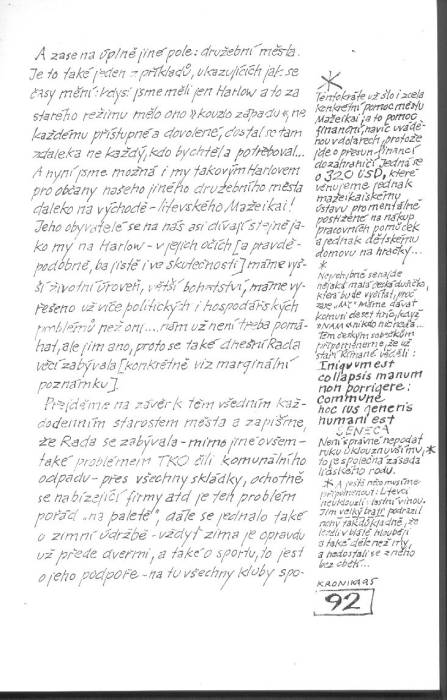 A zase na úplně jiné pole: družební města.
Je to také jeden z příkladů, ukazujících jak se
časy mění: kdysi jsme měli jen Harlow a to za
starého režimu mělo ono "kouzlo západu", ne
každému přístupné a dovolené, dostal se tam
zdaleka ne každý, kdo by chtěl a potřeboval...
A nyní jsme možná i my takovým Harlovem
pro občany našeho jiného družebního města
daleko na východě - litevského Mažeikai!
Jeho obyvatelé se na nás asi dívají stejně ja-
ko my na Harlow - v jejich očích [a pravdě-
podobně, ba jistě i ve skutečnosti] máme vyš-
ší životní úroveň, větší bohatství, máme vy-
řešeno už více politických i hospodářských
problémů než oni.... nám už není třeba pomá-
hat, ale jim ano, proto se také dnešní Rada
věcí zabývala [konkrétně viz marginální
poznámku].
Přejděme na závěr k těm všedním kaž-
dodenním starostem města a zapišme,
že Rada se zabývala - mimo jiné ovšem -
také problémem TKO čili komunálního
odpadu - přes všechny skládky, ochotně
se nabízející firmy atd je ten problém
pořád "na paletě", dále se jednalo také
o zimní údržbě - vždyť zima je opravdu
už přede dveřmi, a také o sportu, to jest
o jeho podpoře - na tu všechny kluby spo-
*
Tentokráte už šlo i zcela
konkrétní pomoc městu
Mažeikai ja to pomoc
finanční, navíc uvádě-
nou v dolarech, protože
jde o přesun financí
do zahraničí. Jedná se
o 320 USD, které
věnujeme jednak
mažeikaiskému
ústavu pro mentálně
postižené na nákup
pracovních pomůcek
a jednak dětskému
domovu na hračky...
*
Nepochybně se najde
nějaká malá česká dušička,
která bude vyčítat, proč
zase "MY" máme dávat
komusi deset tisíc, když
"NÁM" nikdo nic nedá...
Těm českým sobečkům
připomeňme, že už
staří Římané věděli:
Iniquum est
collapsis manum
non porrigere:
commune
hoc ius generis
humani est
SENECA
Není správné nepodat
ruku uklouznuvšímu,*
to je společná zásada
lidského rodu.
* A ještě něco musíme
připomenout: Litevci
neuklouzli vlastní vinou.
Jim velký bratr podrazil
nohy tak důkladně, že
leželi v blátě hlouběji
a také déle než my,
a nedostali se z něho
bez obětí...
KRONIKA 95
92